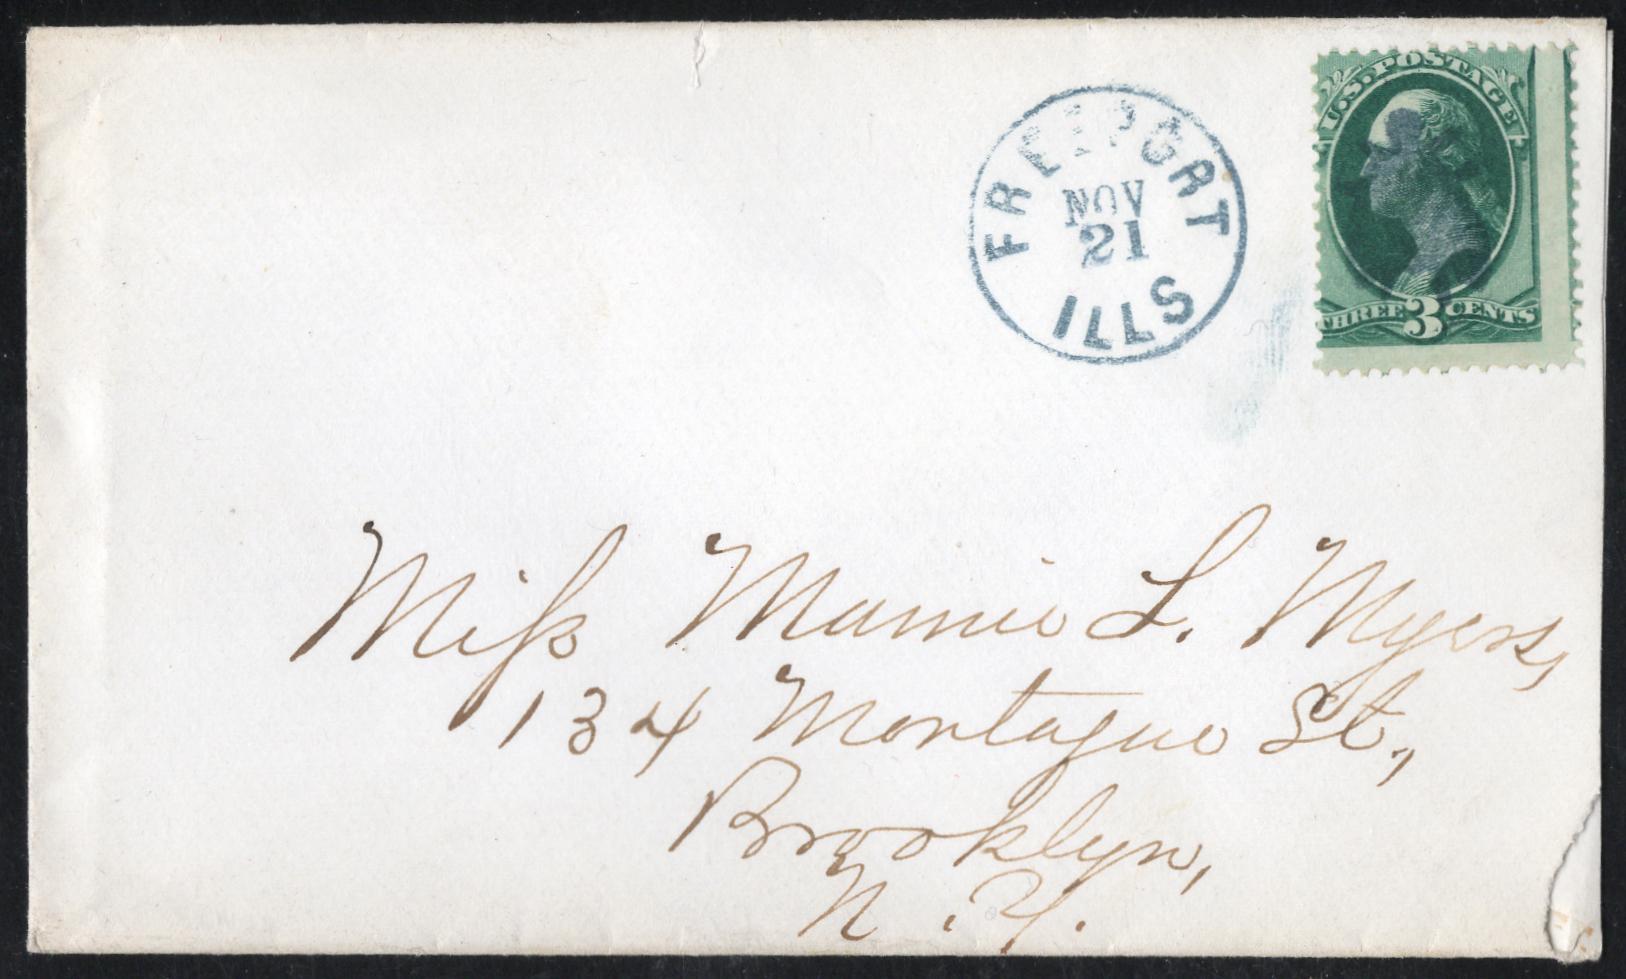 FREEPORT
NOV
21
ILLS
U.S. POSTAGE
THREE 3 CENTS
Miss Mamie L. Myers,
134 Montague St.,
Brooklyn,
N.Y.